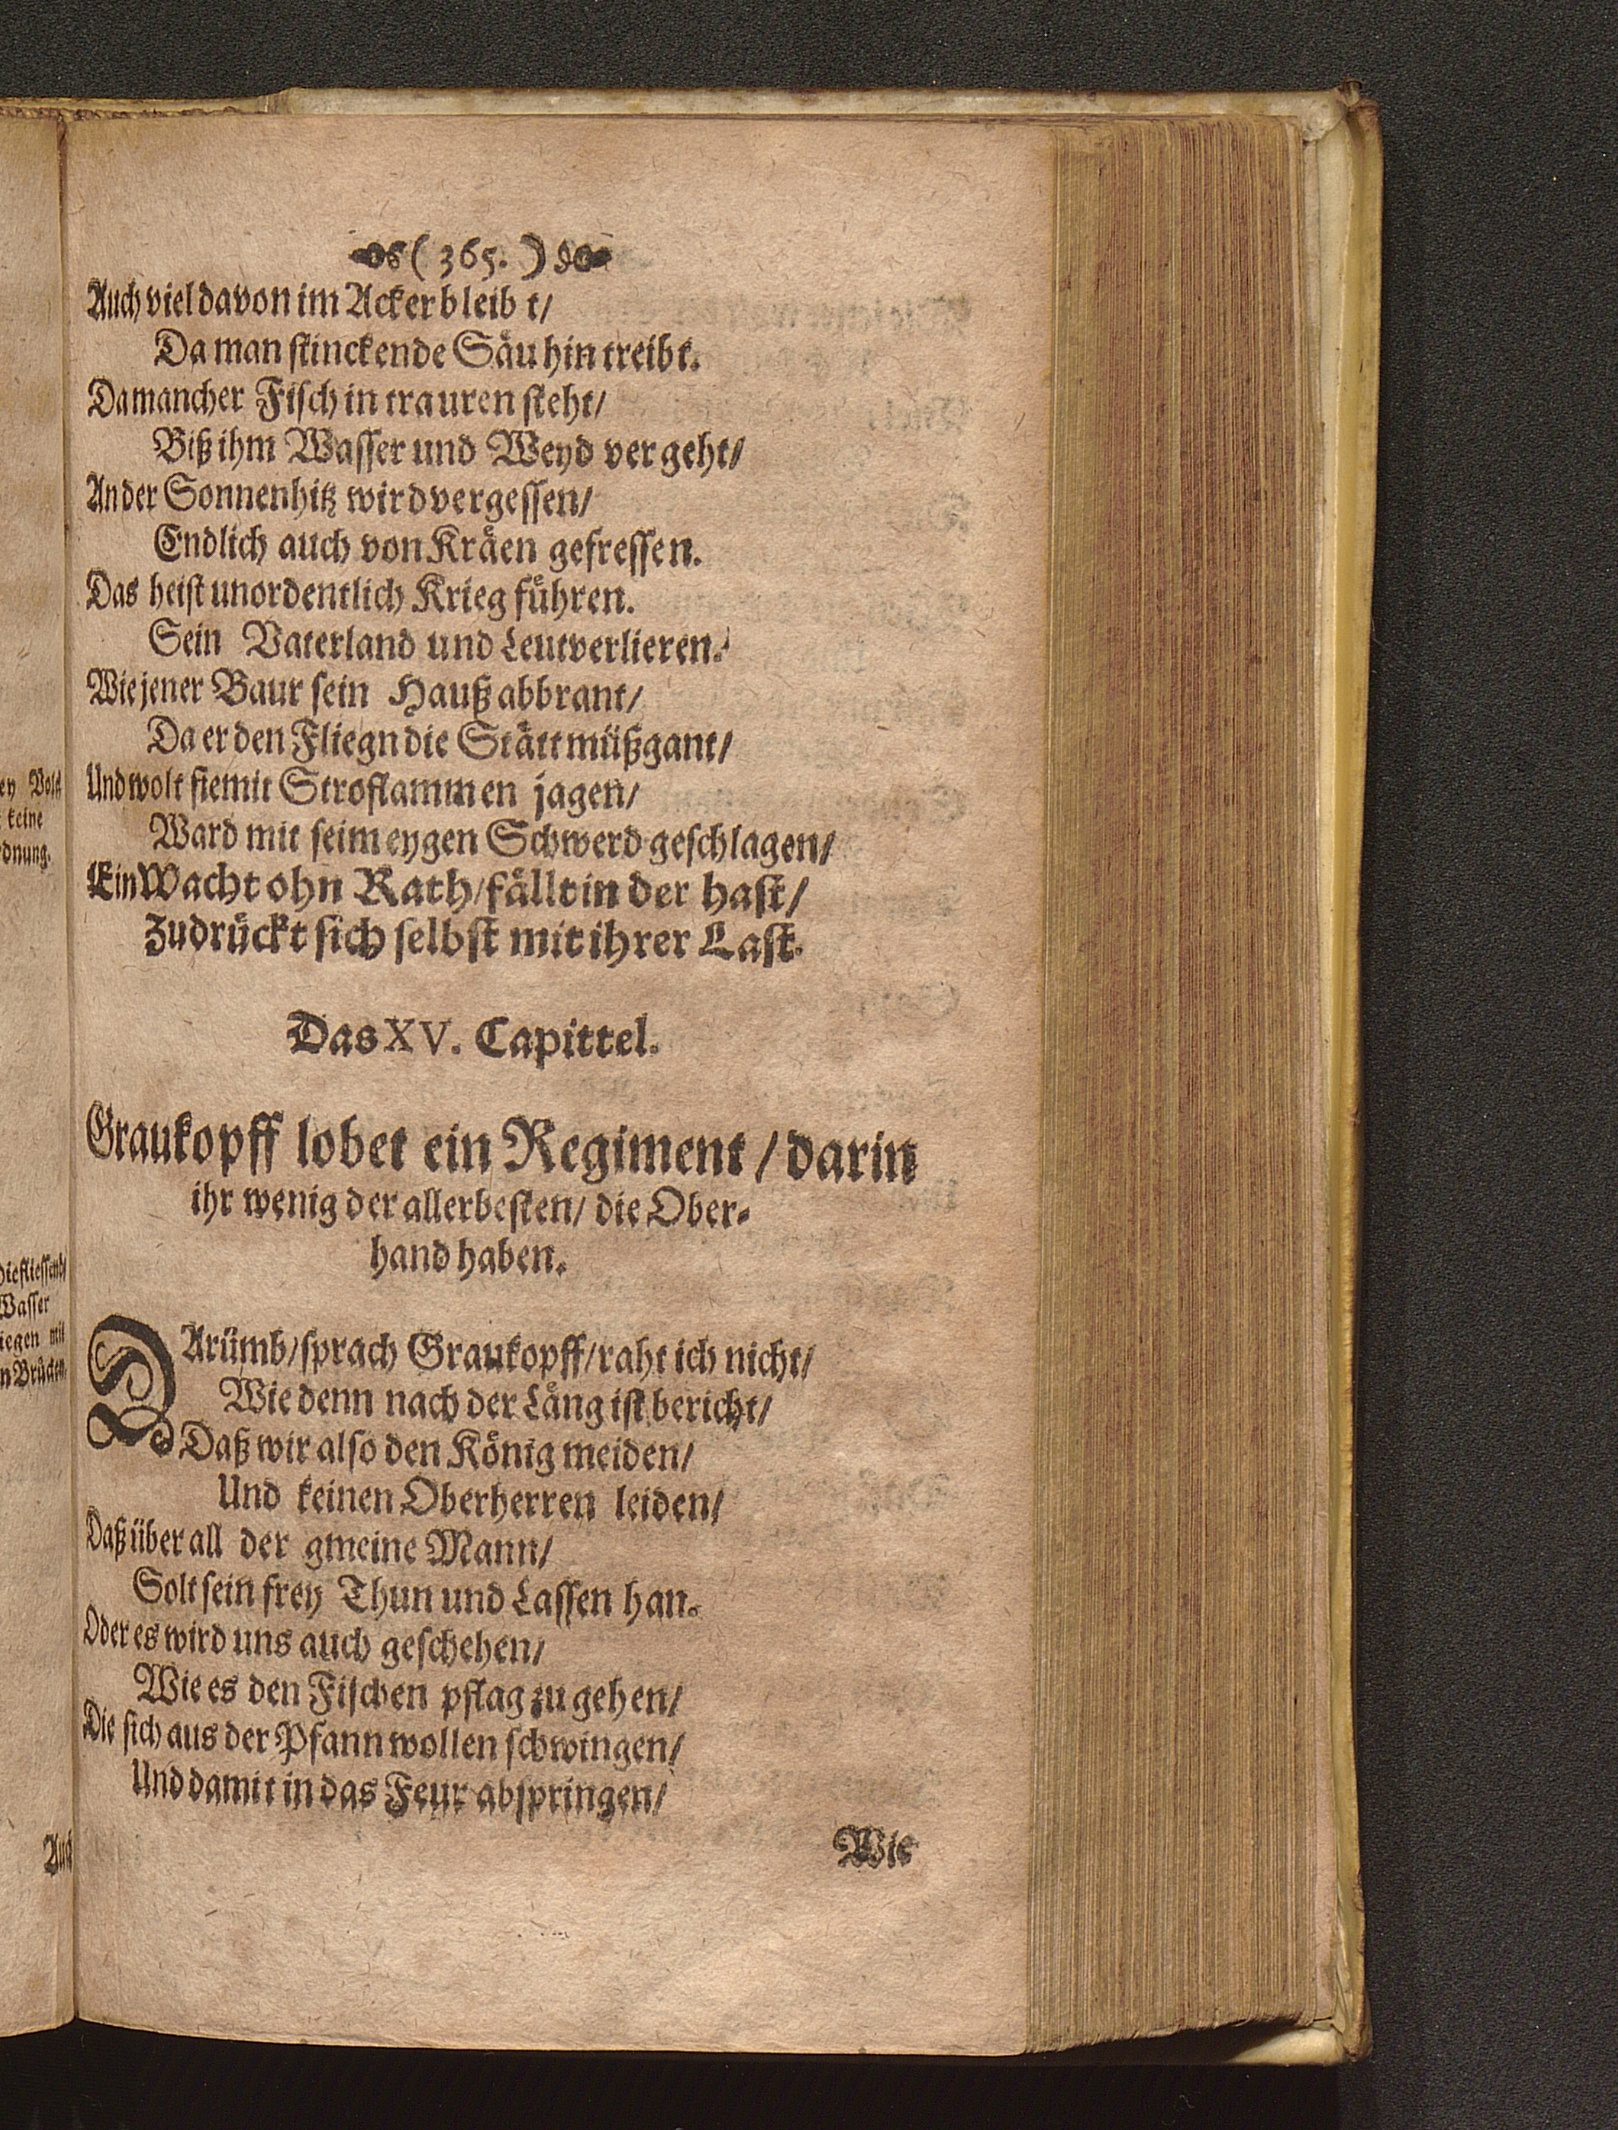 ( 365. )
Auch viel davon im Acker bleibt/
Da man stinckende Säu hin treibt.
Da mancher Fisch in trauren steht/
Biß ihm Wasser und Weyd vergeht/
An der Sonnenhitz wird vergessen/
Endlich auch von Kräen gefressen.
Das heist unordentlich Krieg führen.
Sein Vaterland und Leut verlieren.
Wie jener Baur sein Hauß abbrant/
Da er den Fliegn die Stätt müßgant/
Und wolt sie mit Stroflammen jagen/
Ward mit seim eygen Schwerd geschlagen/
Ein Wacht ohn Rath/ fällt in der hast/
Zudrückt sich selbst mit ihrer Last.
Das XV. Capittel.
Graukopff lobet ein Regiment / darin
ihr wenig der allerbesten/ die Ober-
hand haben.
DArümb/ sprach Graukopff/ raht ich nicht/
Wie denn nach der Läng ist bericht/
Daß wir also den König meiden/
Und keinen Oberherren leiden/
Daß über all der gmeine Mann/
Solt sein frey Thun und Lassen han.
Oder es wird uns auch geschehen/
Wie es den Fischen pflag zu gehen/
Die sich aus der Pfann wollen schwingen/
Und damit in das Feur abspringen/
Wie